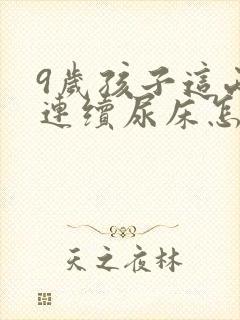 9歲孩子這兩
連續尿床怎
天之夜林